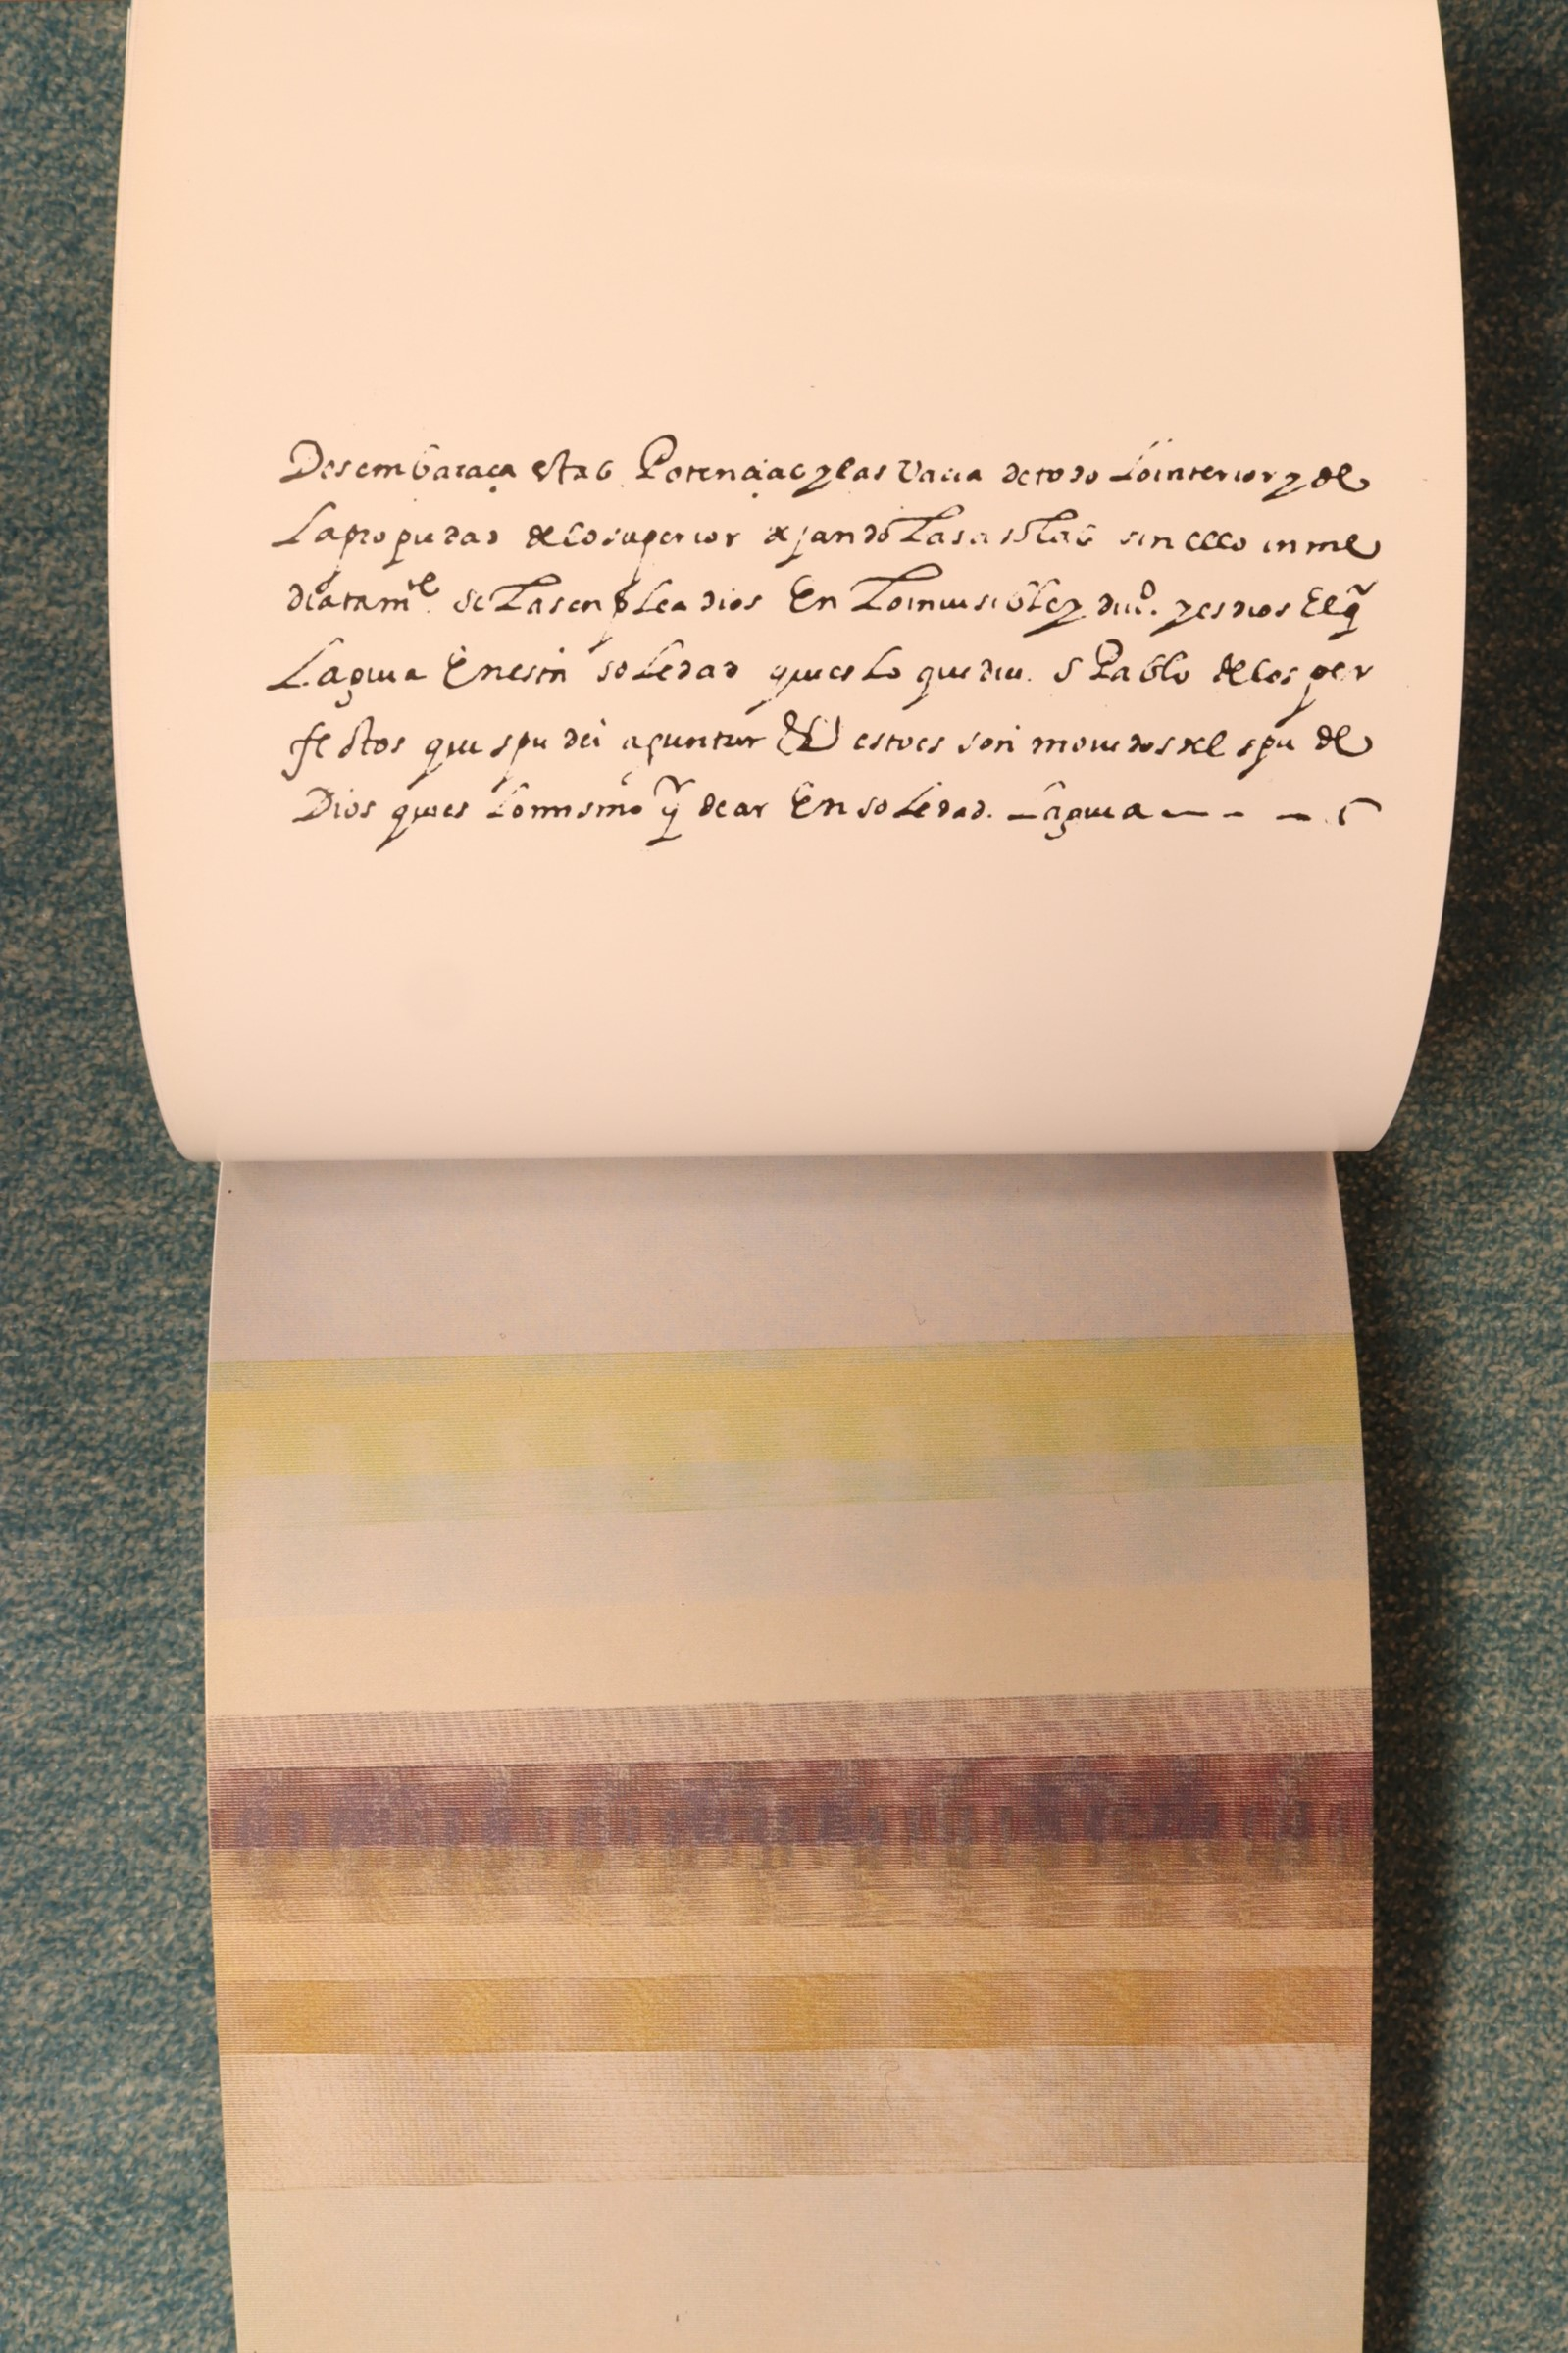 Desembaraça estas Potencias y las vacia de todo lo interior y de
la propiedad de lo superior dejandolas a solas sin ello inme
diatamte. se las enplea dios En lo inuisible y diuo. y es dios El q̃
La guia En esta soledad que es lo que diçe. S Pablo de los per
fectos qui spu dei aguntur &c esto es son mouidos del spu de
Dios que es lo mismo q̃ deçir En soledad. La guia — - —